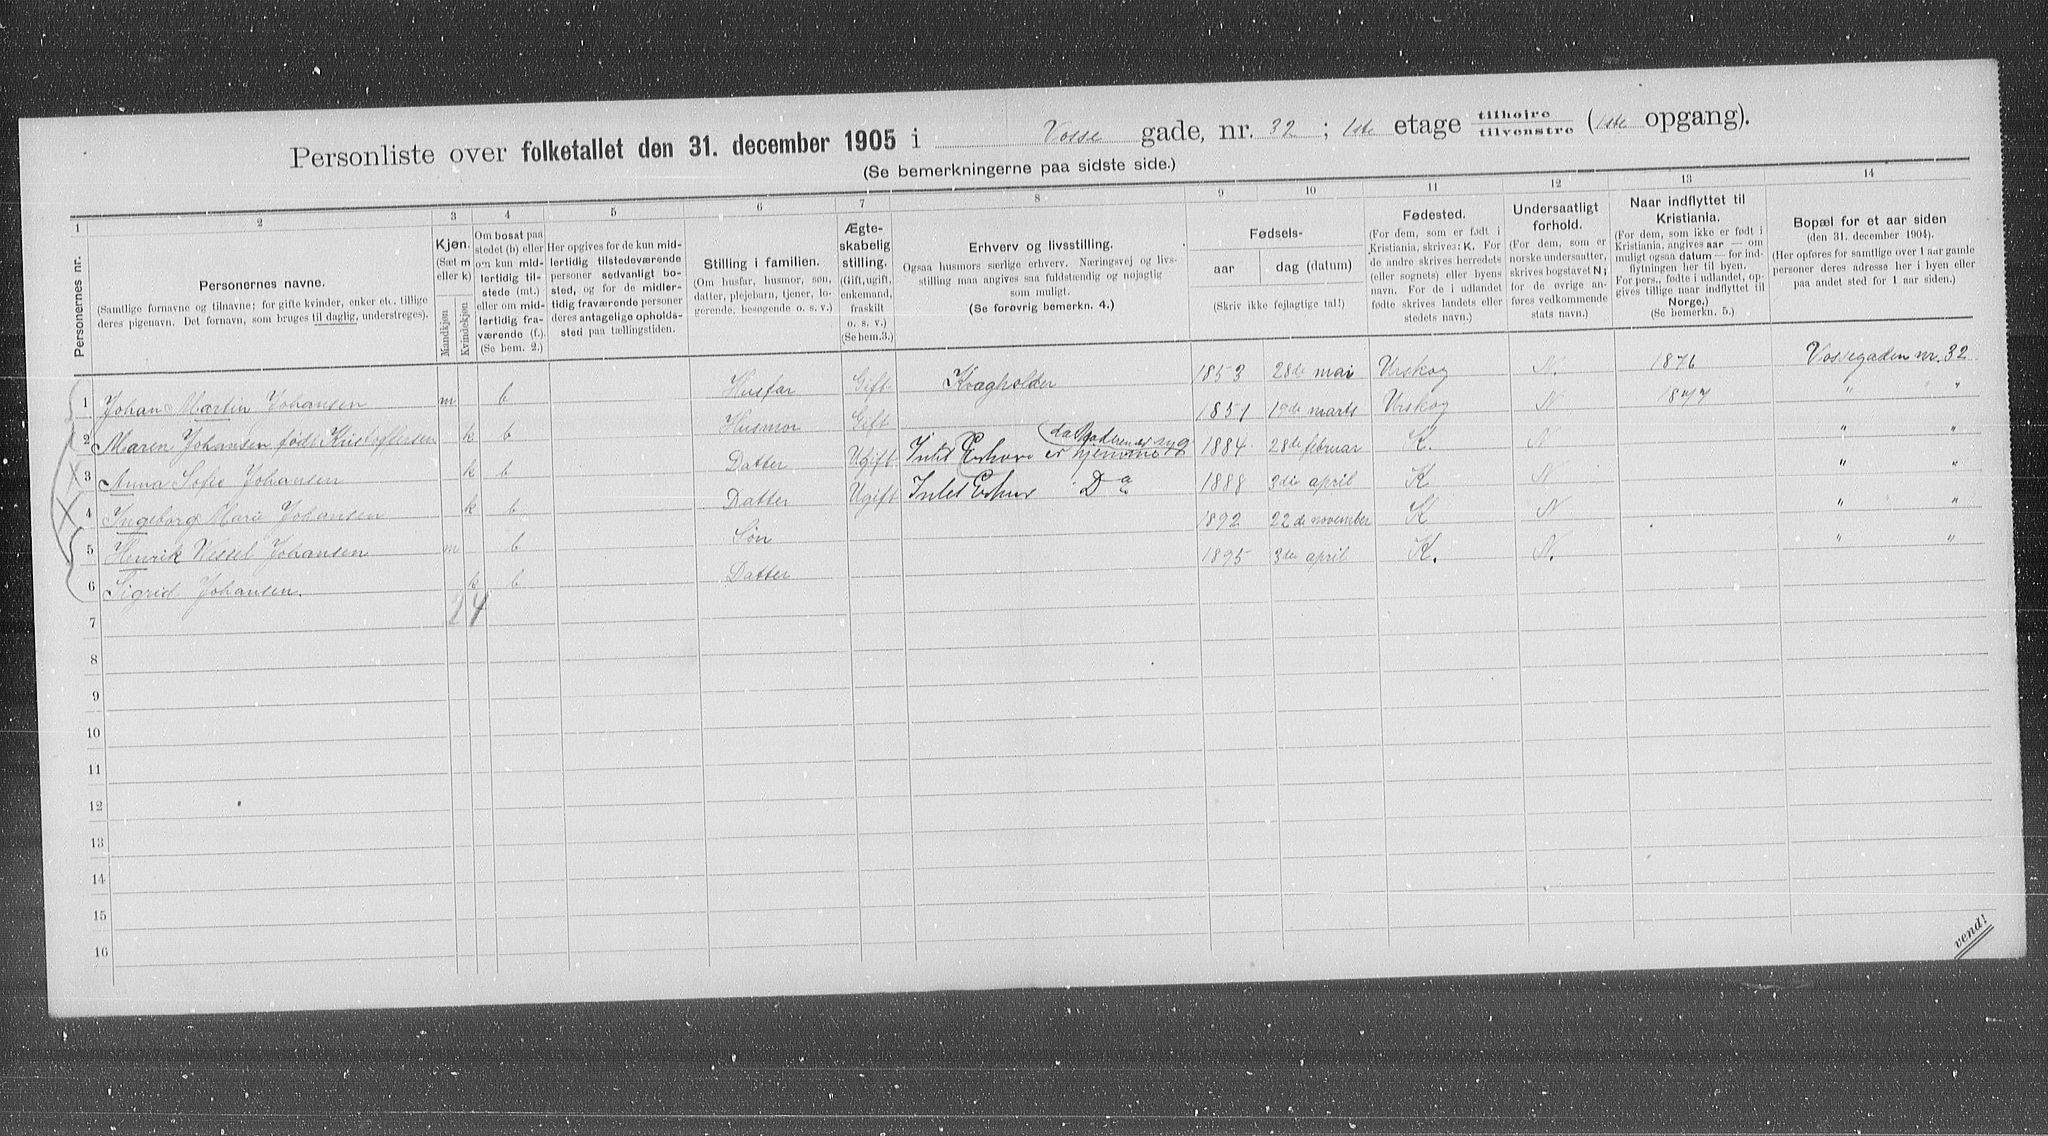 Personliste over folketallet den 31. december 1905 i Vosse gade, nr. 32 ; 1ste etage tilhøjre tilvenstre (1ste opgang).
(Se bemerkningerne paa sidste side.)
1 2 3 4 5 6 7 8 9 10 11 12 13 14
Personernes nr.
Personernes navne.
(Samtlige fornavne og tilnavne; for gifte kvinder, enker etc. tillige
deres pigenavn. Det fornavn, som bruges til daglig, understreges).
Kjøn.
(Sæt m
eller k)
Mandkjøn
Kvindekjøn
Om bosat paa
stedet (b) eller
om kun mid-
lertidig til-
stede (mt.)
eller om mid-
lertidig fra-
værende (f.).
(Se bem. 2.)
Her opgives for de kun mid-
lertidig tilstedeværende
personer sedvanligt bo-
sted, og for de midler-
tidig fraværende personer
deres antagelige opholds-
sted paa tællingstiden.
Stilling i familien.
(Om husfar, husmor, søn,
datter, plejebarn, tjener, lo-
gerende, besøgende o. s. v.)
Ægte-
skabelig
stilling.
(Gift, ugift,
enkemand,
fraskilt
o. s. v.)
(Se bem.3.)
Erhverv og livsstilling.
Ogsaa husmors særlige erhverv. Næringsvej og livs-
stilling maa angives saa fuldstændig og nøjagtig
som muligt.
(Se forøvrig bemerkn. 4.)
Fødsels-
aar
dag (datum)
(Skriv ikke fejlagtige tal!)
Fødested.
(For dem, som er født i
Kristiania, skrives: K. For
de andre skrives herredets
(eller sognets) eller byens
navn. For de i udlandet
fødte skrives landets eller
stedets navn.)
Undersaatligt
forhold.
(For dem, som er
norske undersaatter,
skrives bogstavet N;
for de øvrige an-
føres vedkommende
stats navn.)
Naar indflyttet til
Kristiania.
(For dem, som ikke er født i
Kristiania, angives aar — om
muligt ogsaa datum — for ind-
flytningen her til byen.
For pers., fødte i udlandet, op-
gives tillige naar indflyttet til
Norge.)
(Se bemerkn. 5.)
Bopæl for et aar siden
(den 31. december 1904).
(Her opføres for samtlige over 1 aar gamle
personer deres adresse her i byen eller
paa andet sted for 1 aar siden.)
1 Johan Martin Johansen m b Husfar Gift Kvægholder 1853 28de mai Urskog N. 1876 Vossegaden nr. 32
2 Maren Johansen født Kristoffersen k b Husmor Gift 1851 19de marts Urskog N 1877 " "
3 Anna Sofie Johansen k b Datter Ugift Intet Erhverv er hjemme da Moderen er syg 1884 28de februar K. N " "
4 Ingeborg Marie Johansen k b Datter Ugift Intet Erhv Do 1888 3die april K N " "
5 Henrik Vessel Johansen m b Søn 1892 22de november K N " "
6 Sigrid Johansen. k b Datter 1895 3die april K. N. " "
7 2 4
8
9
10
11
12
13
14
15
16
vend!